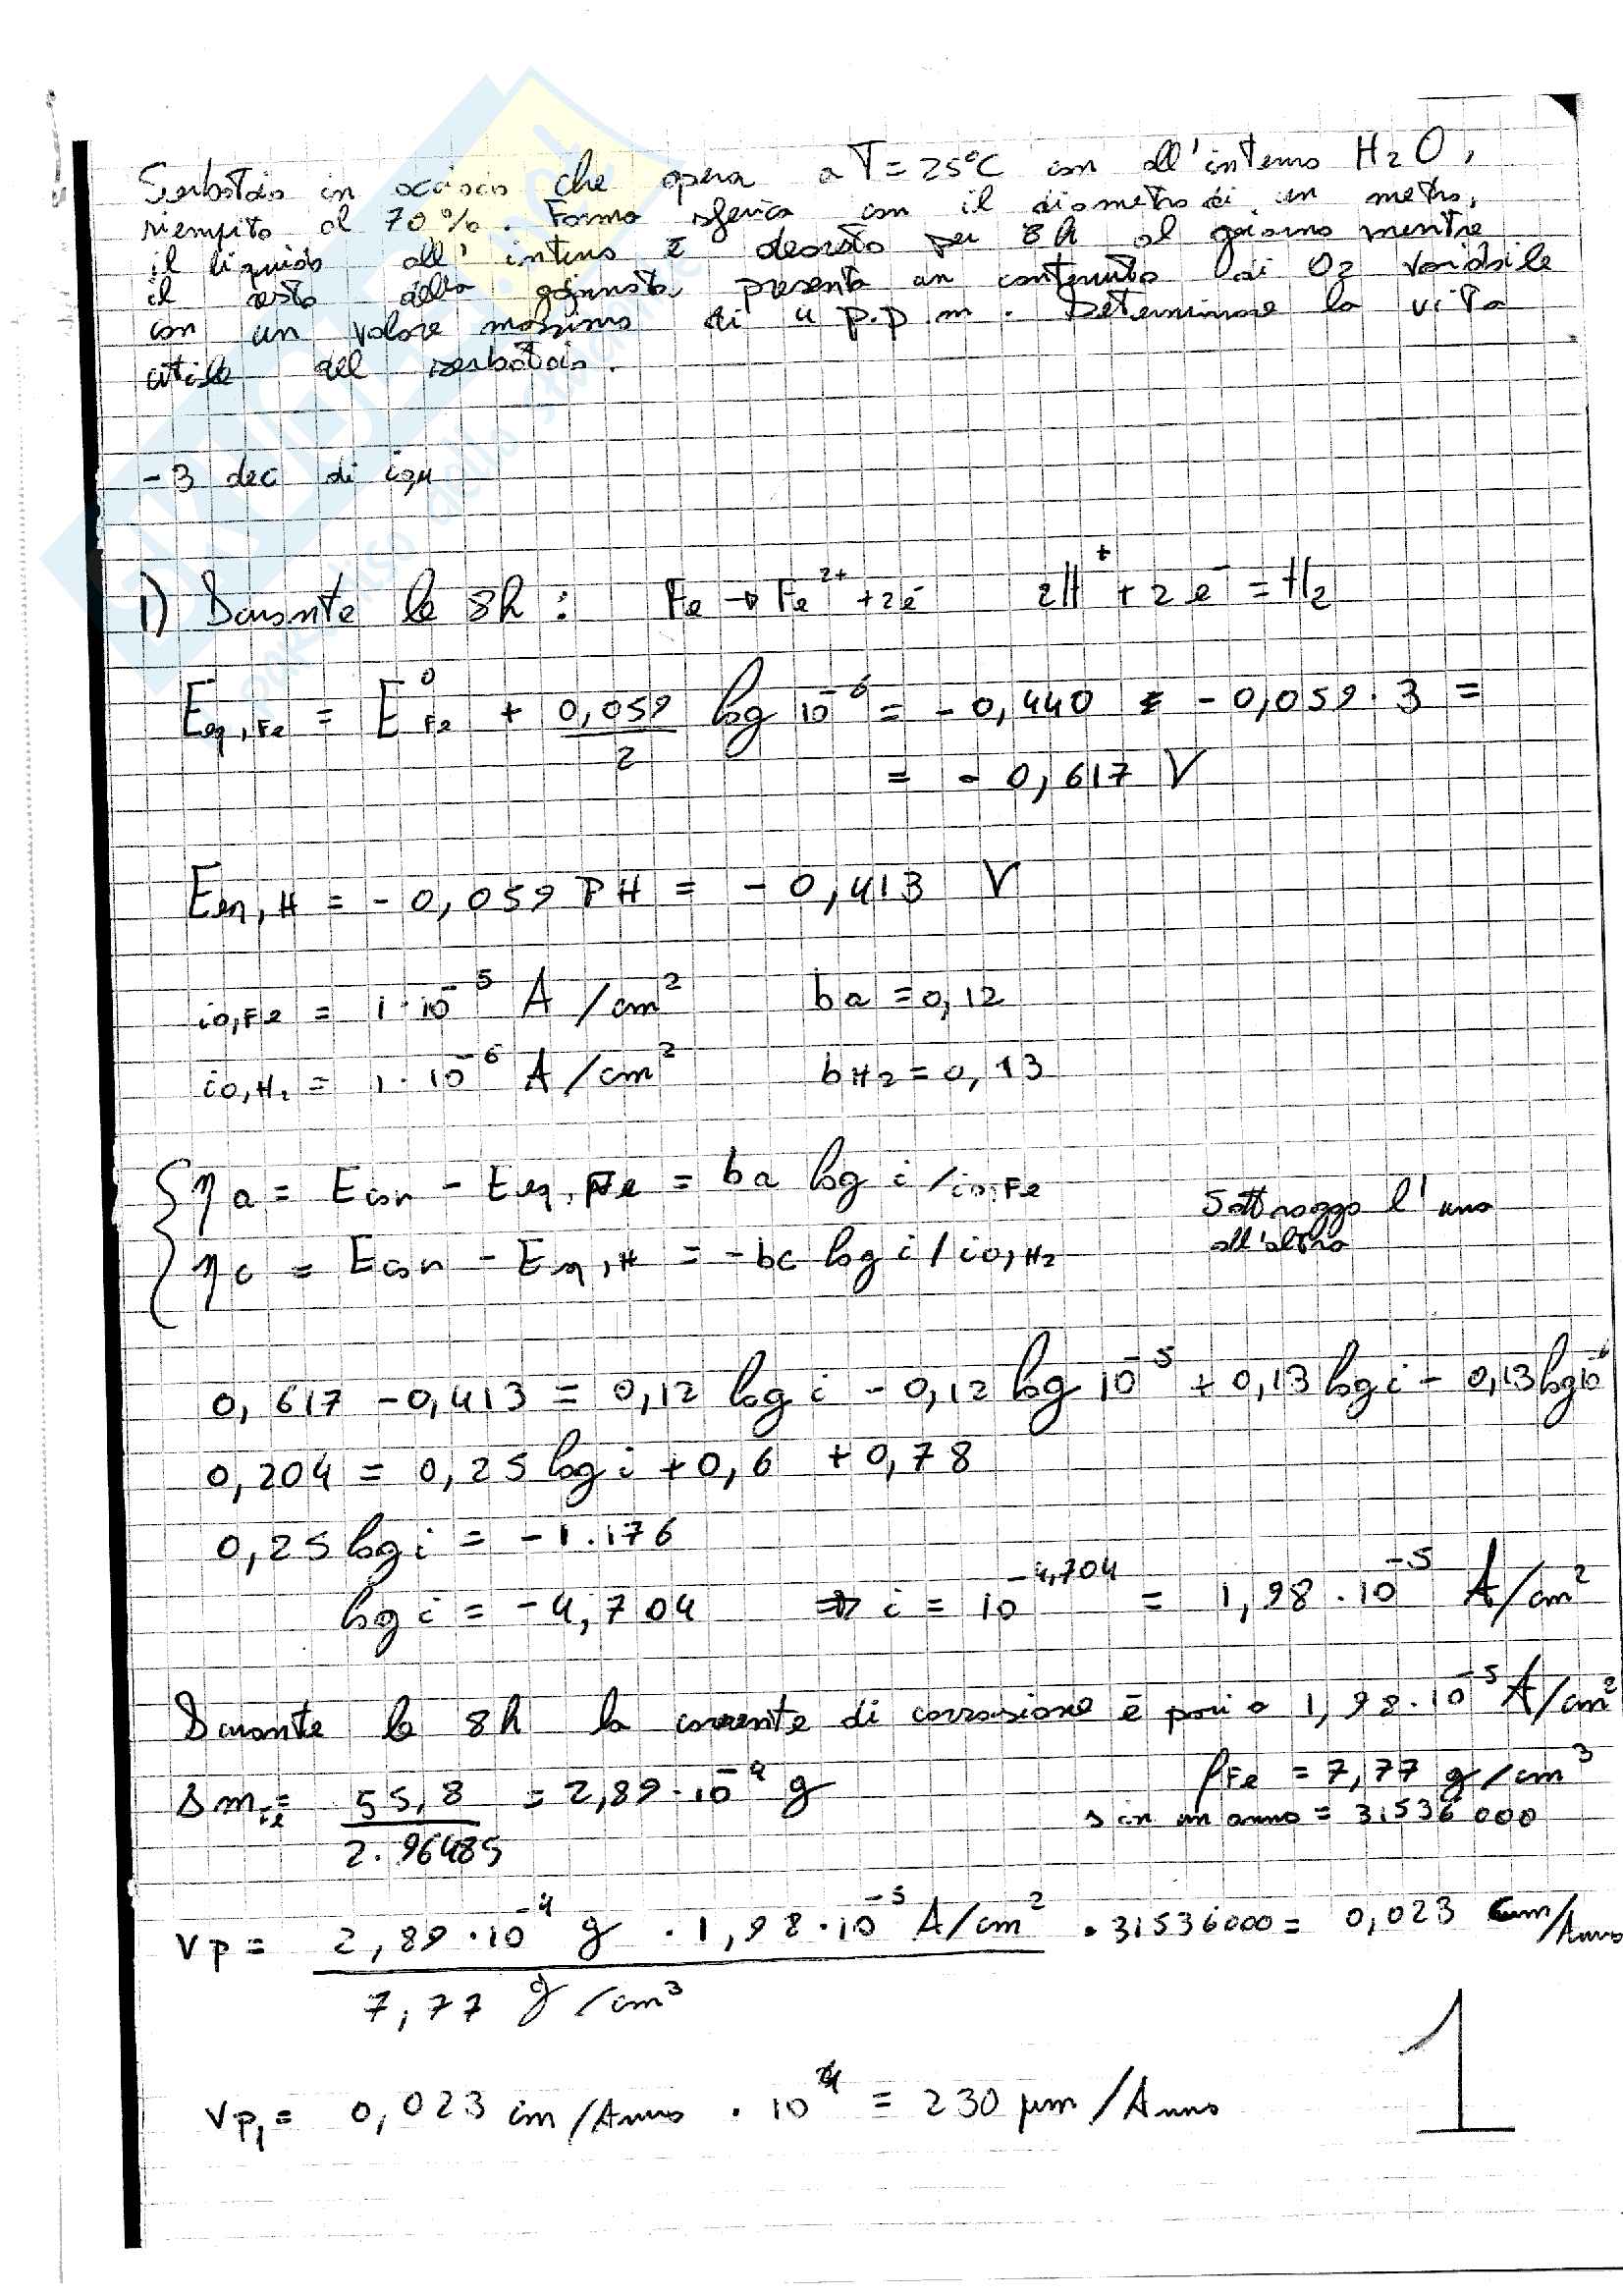 Serbatoio in acciaio che opera a T=25°C con all'interno H2O,
riempito al 70%. Forma sferica con il diametro di un metro,
il liquido all'interno è deareato per 8h al giorno mentre
il resto della giornata, presenta un contenuto di O2 variabile
con un valore massimo di 4 p.p.m. Determinare la vita
utile del serbatoio.
-3 dec di
1) Durante le 8h : Fe → Fe²⁺ +2e⁻ 2H⁺ + 2e⁻ = H2
Eeq,Fe = E⁰Fe + 0,059/2 log 10⁻⁶ = - 0,440 - 0,059 · 3 =
= - 0,617 V
Eeq,H = - 0,059 PH = - 0,413 V
io,Fe = 1·10⁻⁵ A/cm² ba = 0,12
io,H2 = 1·10⁻⁶ A/cm² bH2 = 0,13
ηa = Ecorr - Eeq,Fe = ba log i/io,Fe
Sottraggo l'uno
all'altro
ηc = Ecorr - Eeq,H = -bc log i/io,H2
0,617 - 0,413 = 0,12 log i - 0,12 log 10⁻⁵ + 0,13 log i - 0,13 log 10⁻⁶
0,204 = 0,25 log i + 0,6 + 0,78
0,25 log i = -1.176
log i = -4,704 ⇒ i = 10⁻⁴,⁷⁰⁴ = 1,98·10⁻⁵ A/cm²
Durante le 8h la corrente di corrosione è pari a 1,98·10⁻⁵ A/cm²
Δm,Fe = 55,8/2·96485 = 2,89·10⁻⁴ g ρFe = 7,77 g/cm³
s in un anno = 31536000
vp = 2,89·10⁻⁴ g · 1,98·10⁻⁵ A/cm² / 7,77 g/cm³ · 31536000 = 0,023 cm/Anno
vp1 = 0,023 cm/Anno · 10⁴ = 230 μm/Anno
1